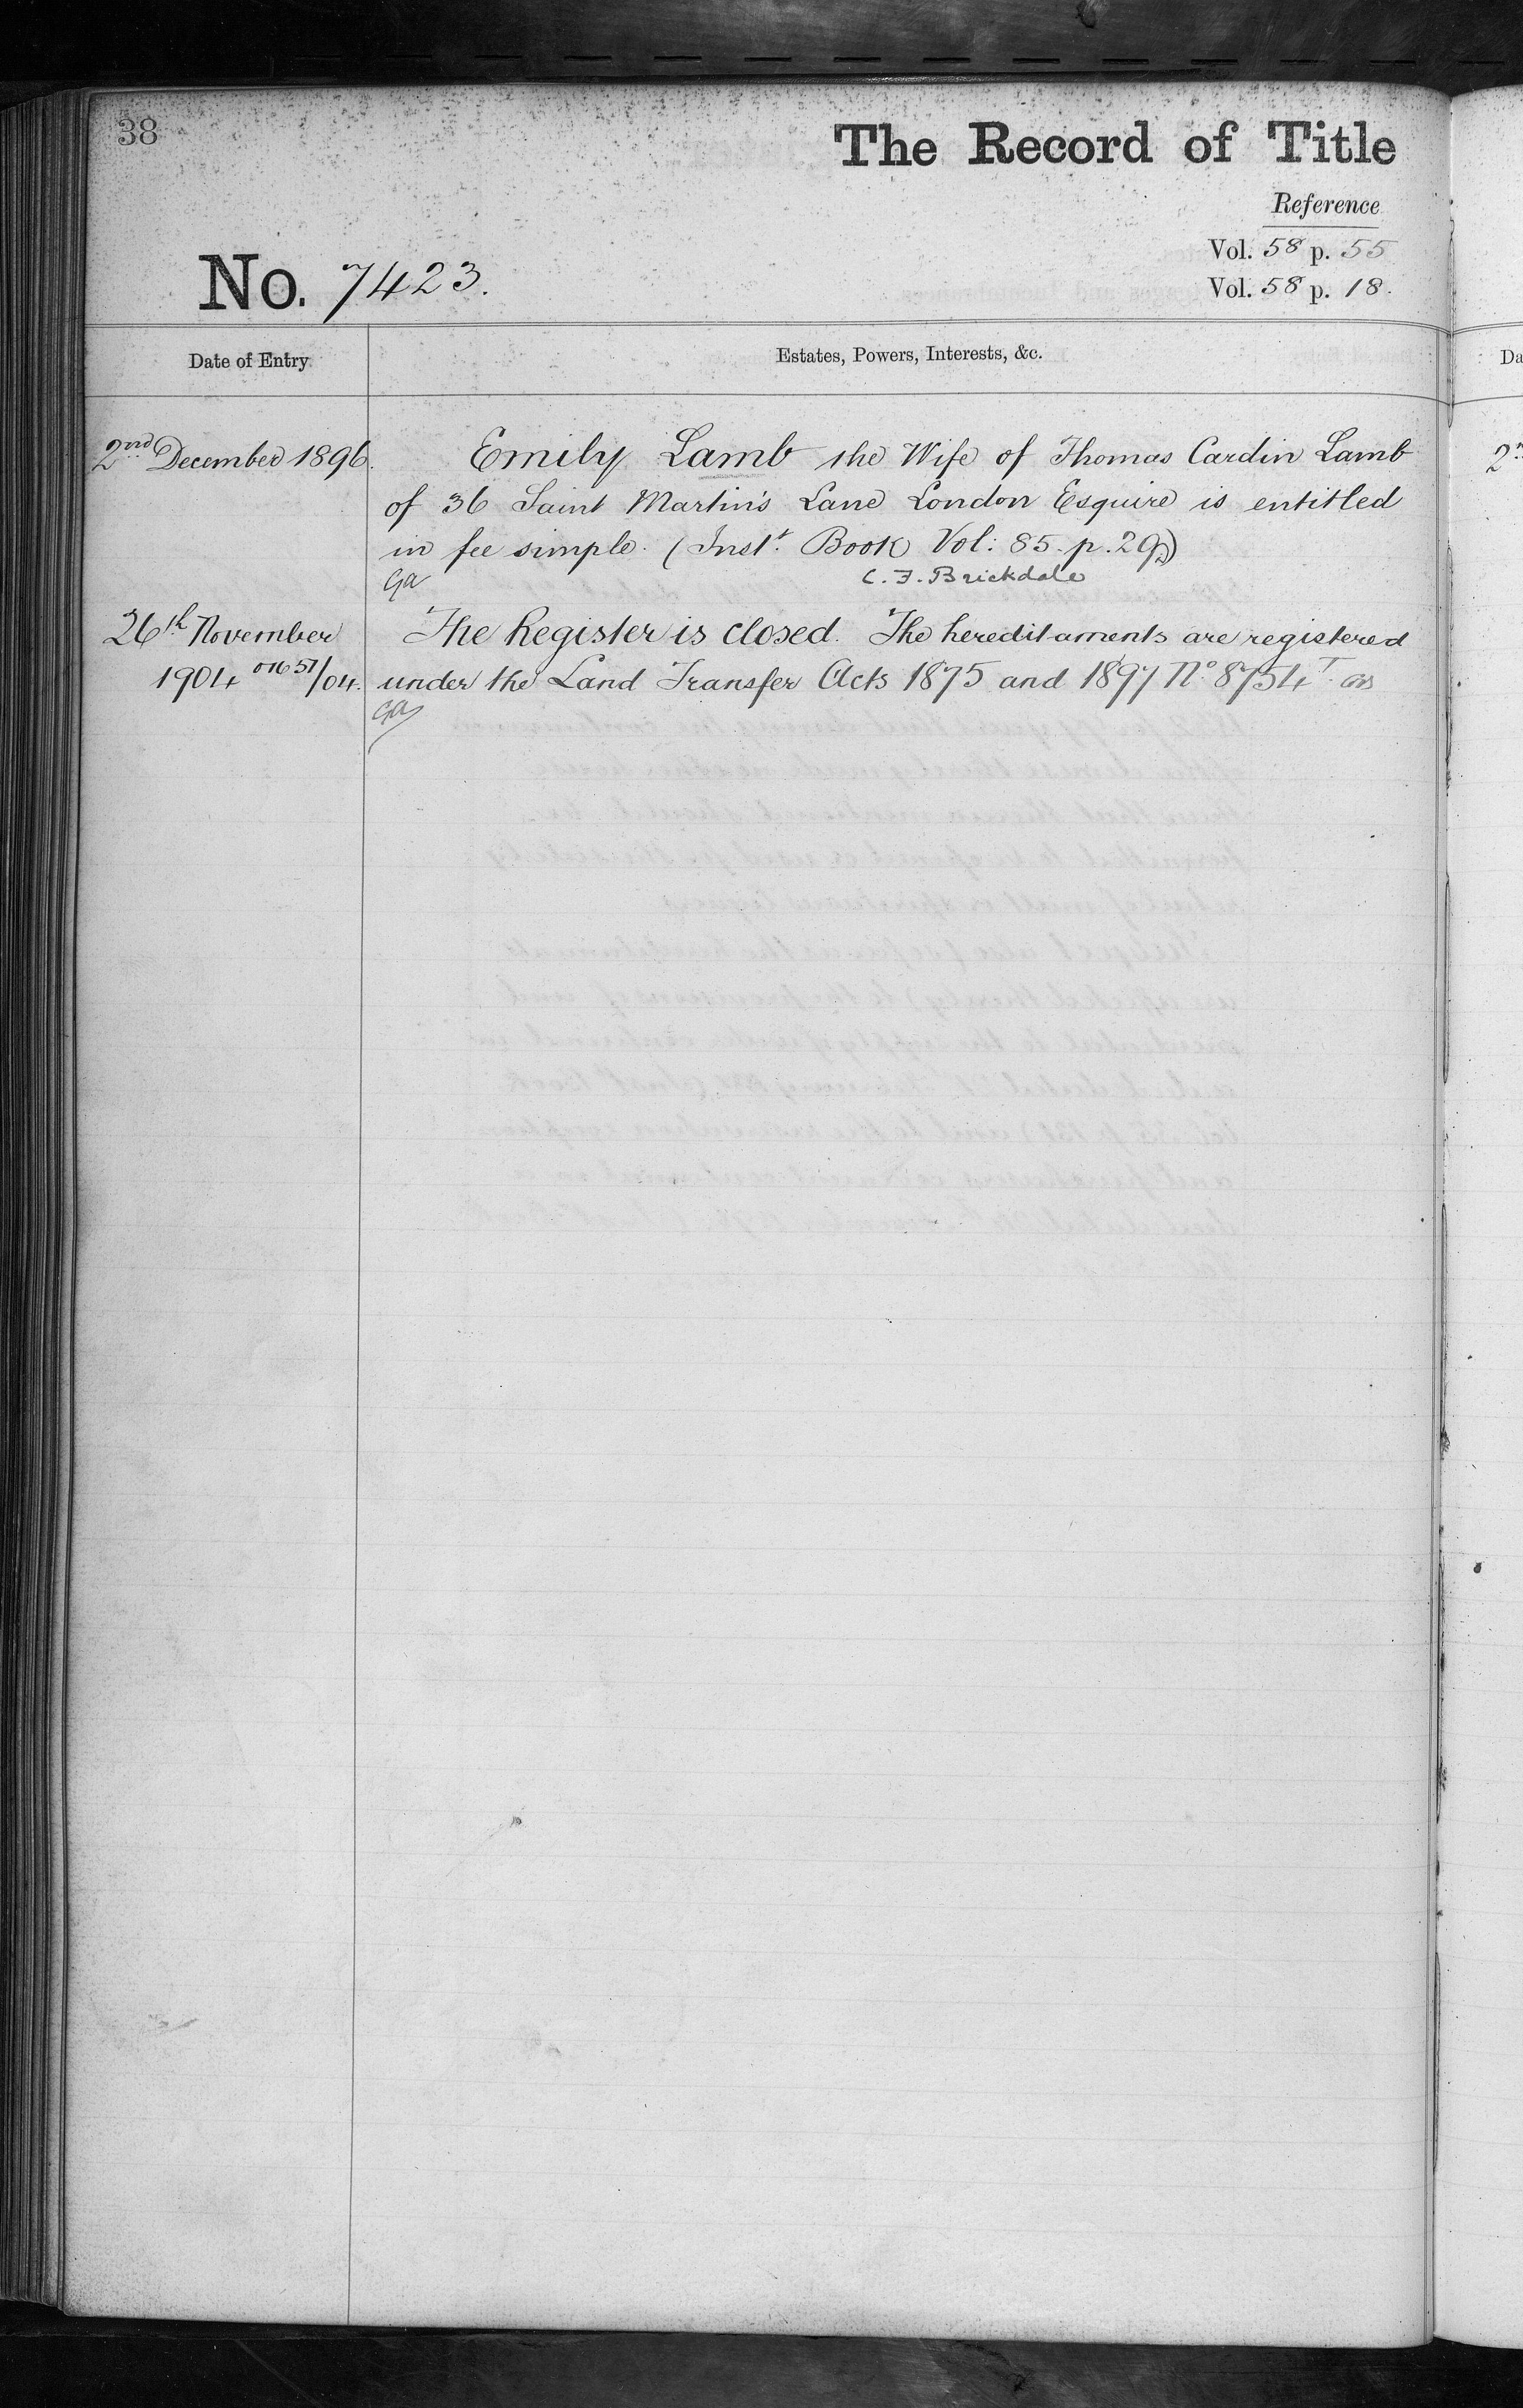 38
The Record of Title
Reference
Vol. 58 p. 55
No. 7423.
Vol. 58 p. 18.
Date of Entry
Estates, Powers, Interests, &c.
Da
2nd December 1896.
Emily Lamb the Wife of Thomas Cardin Lamb
of 36 Saint Martin's Lane London Esquire is entitled
in fee simple. (Inst. Book Vol: 85. p. 29)
Ga
C. F. Brickdale
26th November
The Register is closed. The hereditaments are registered
1904
/04.
under the Land Transfer Acts 1875 and 1897 No. 8754
Ga